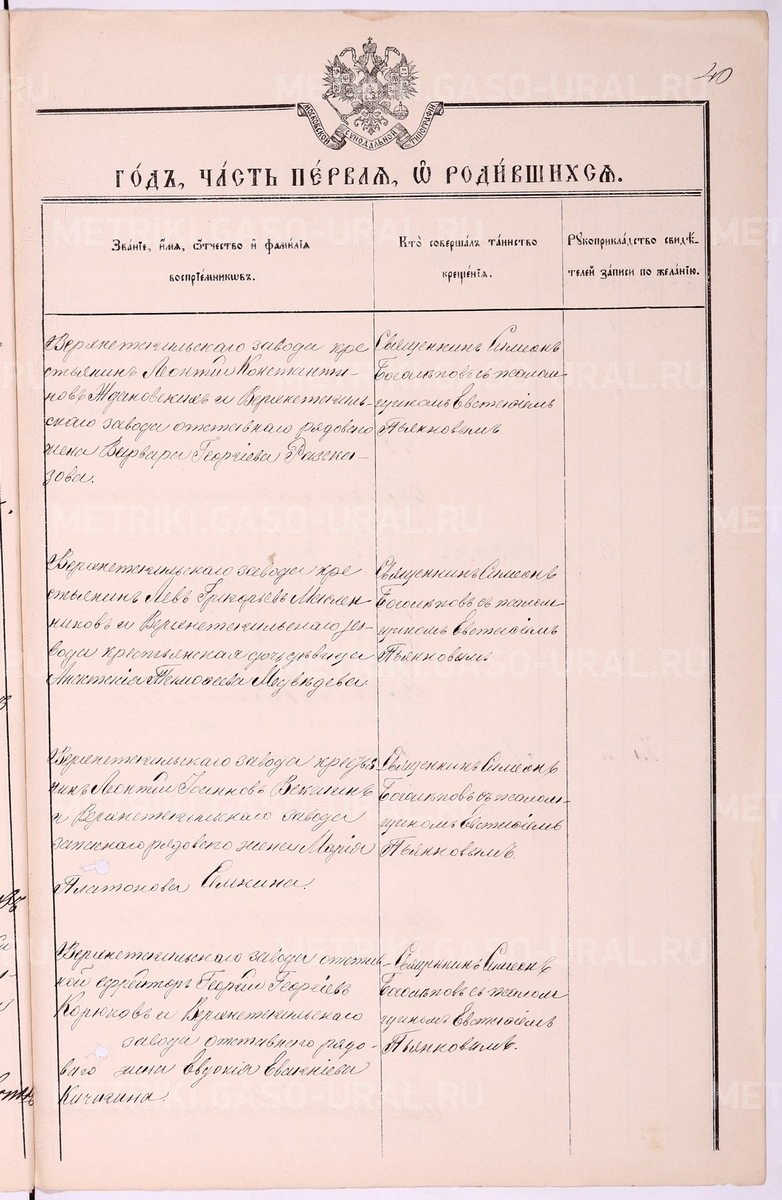 40
МОСКОВСКОЙ СѴНОДАЛЬНОЙ ТИПОГРАФІИ
ГО́ДЪ, ЧА́СТЬ ПЕ́РВАЯ, Ѿ РОДИ́ВШИХСЯ.
Зва́нїе, и҆́мѧ, ѻ҆́тчество и҆ фами́лїѧ
воспрїе́мникѡвъ.
Кто̀ соверша́лъ та́инство
креще́нїѧ.
Рꙋкоприкла́дство свидѣ́-
телей за́писи по жела́нїю.
Верхнетагильскаго завода кре
стьянинъ Леонтій Константи-
новъ и Верхнетагиль-
скаго завода отставнаго рядоваго
жена Варвара Георгіева Разска-
зова.
Священникъ Симеонъ
Боголѣповъ съ псалом-
щикомъ Евстафіемъ
Пьянковымъ
Верхнетагильскаго завода кре
стьянинъ Левъ Григорьевъ Маслен
никовъ и Верхнетагильскаго за-
вода крестьянская дочь дѣвица
Анастасія Тимофеева Медвѣдева
Священникъ Симеонъ
Боголѣповъ съ псалом
щикомъ Евстафіемъ
Пьянковымъ
Верхнетагильскаго завода крестья
нинъ Леонтій
и Верхнетагильскаго завода
запаснаго рядоваго жена Марія
Платонова Сёмкина.
Священникъ Симеонъ
Боголѣповъ съ псалом-
щикомъ Евстафіемъ
Пьянковымъ.
Верхнетагильскаго завода отстав
ной ефрейторъ Георгій Георгіевъ
Корюковъ и Верхнетагильскаго
завода отставнаго рядо-
ваго жена Евдокія
Кичигина
Священникъ Симеонъ
Боголѣповъ съ псалом
щикомъ Евстафіемъ
Пьянковымъ.
METRIKI.GASO-URAL.RU